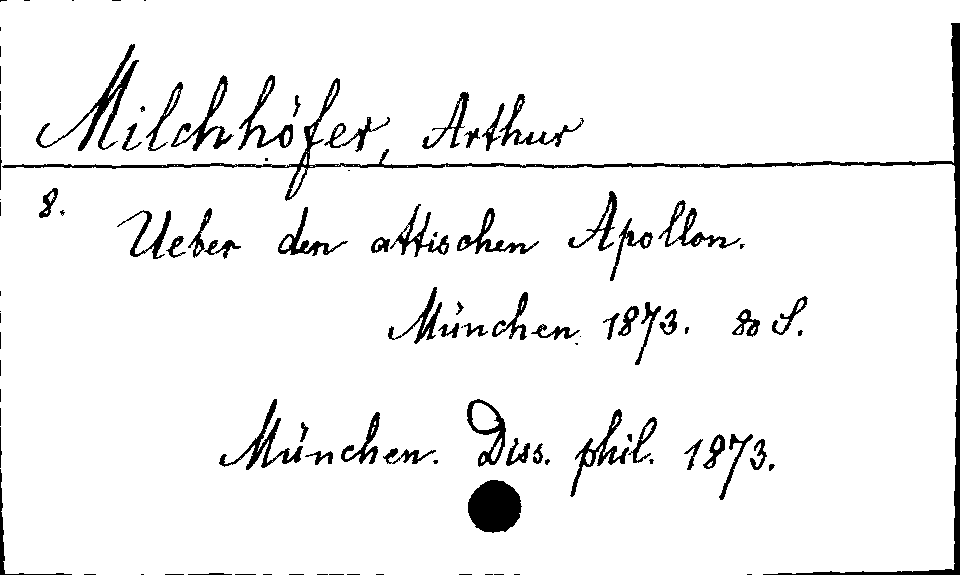 Milchhöfer, Arthur
8.
Ueber den attischen Apollon.
München 1873. 80 S.
München. Diss. phil. 1873.